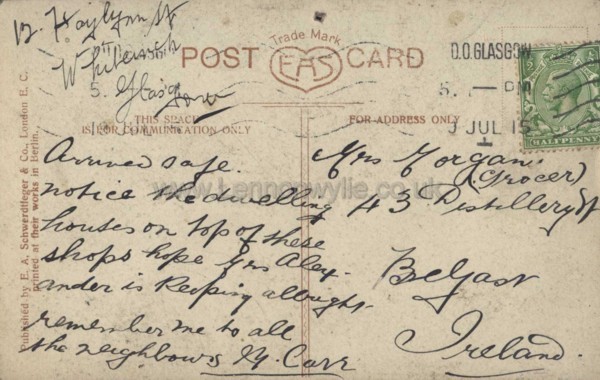 12 Haylynn St
Whiteinch
Glasgow
Trade Mark
POST EAS CARD
D.O. GLASGOW
5. PM
5.
JUL 15
HALFPENNY
THIS SPACE
IS FOR COMMUNICATION ONLY
FOR ADDRESS ONLY
Published by E. A. Schwerdtfeger & Co., London E. C.
printed at their works in Berlin.
Arrived safe.
notice the dwelling
houses on top of these
shops hope Mrs Alex-
ander is keeping allright
remember me to all
the neighbours M. Carr
Mrs Morgan
(Grocer)
43 Distillery St
Belfast
Ireland.
www.Lennonwylie.co.uk